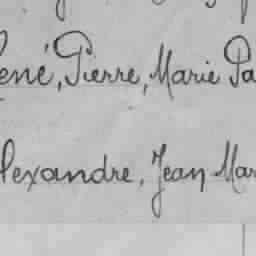 ené, Pierre, Marie Pa
lexandre, Jean Mar